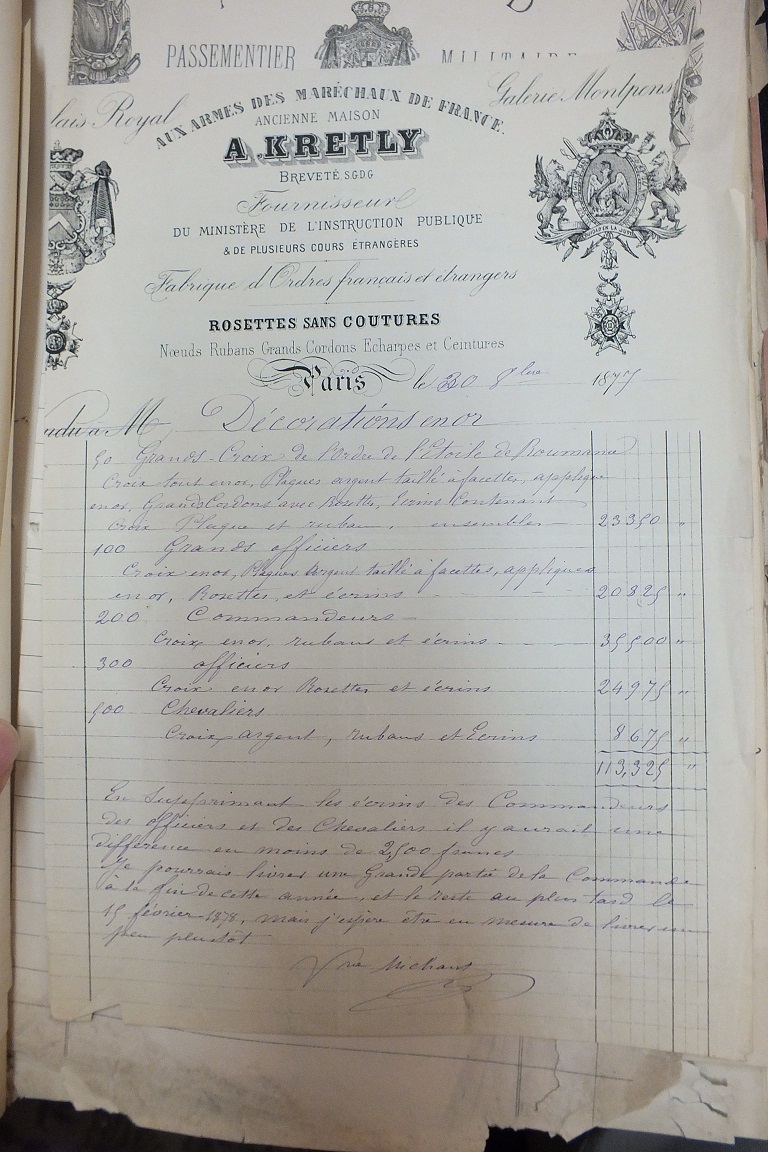 PASSEMENTIER MILITAIRE
lais Royal
Galerie Montpens
AUX ARMES DES MARÉCHAUX DE FRANCE.
ANCIENNE MAISON
A. KRETLY
BREVETÉ S.G.D.G
Fournisseur
DU MINISTÈRE DE L'INSTRUCTION PUBLIQUE
& DE PLUSIEURS COURS ÉTRANGÈRES
Fabrique d'Ordres français et étrangers
ROSETTES SANS COUTURES
Nœuds Rubans Grands Cordons Echarpes et Ceintures
Paris le 30 8bre 1877
ndu à M Décorations en or
50 Grands-Croix de l'Ordre de l'Etoile de Roumanie
Croix tout en or, Plaques argent taillé à facettes, appliques
en or, Grands Cordons avec Rosettes, Ecrins Contenant
Croix Plaque et ruban, ensembles 23350 "
100 Grands officiers
Croix en or, Plaques Argent taillé à facettes, appliques
en or, Rosettes et écrins 20825 "
200 Commandeurs
Croix en or, rubans et écrins 35500 "
300 officiers
Croix en or Rosettes et écrins 24975 "
500 Chevaliers
Croix argent, rubans et Ecrins 8675 "
113,325 "
En Supprimant les écrins des Commandeurs
des officiers et des Chevaliers il y aurait une
différence en moins de 2,500 francs
Je pourrais livrer une Grande partie de la Commande
à la fin de cette année, et le reste au plus tard le
15 février 1878, mais j'espère être en mesure de livrer un
peu plustôt